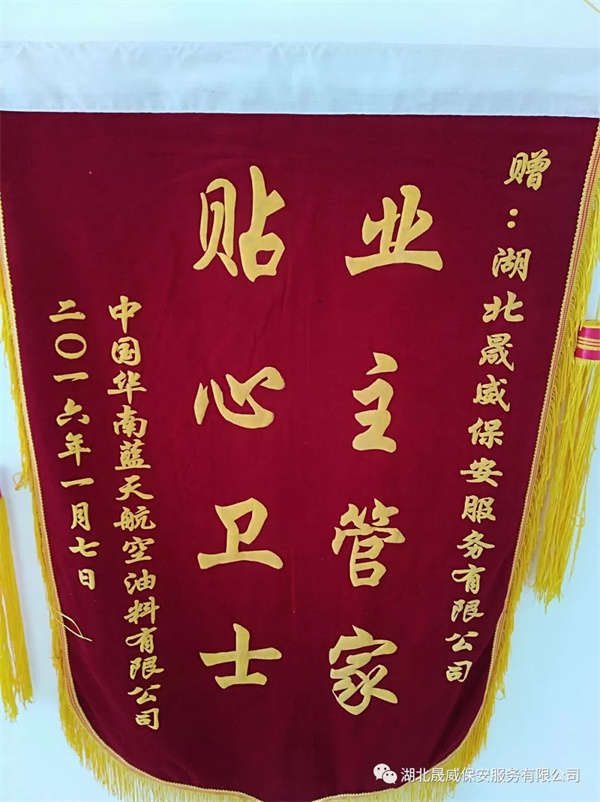 赠：湖北晟威保安服务有限公司
业主管家
贴心卫士
中国华南蓝天航空油料有限公司
二〇一六年一月七日
湖北晟威保安服务有限公司